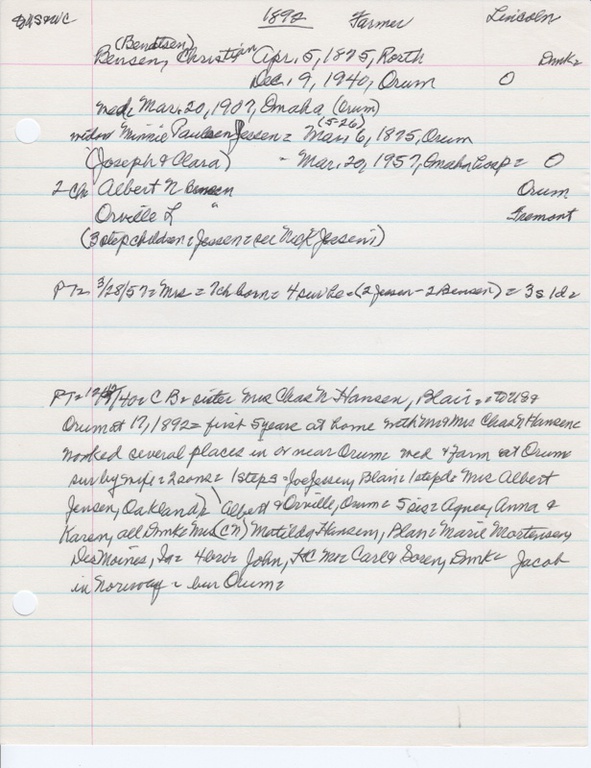 1892 Farmer Lincoln
(Bendtsen)
Bensen, Christian Apr. 5, 1875, Dmk=
Dec. 9, 1940, Orum O
med= Mar. 20, 1907, Omaha (Orum)
(5-26)
widow Minnie Paulsen Jessen = Mar. 6, 1875, Orum
(Joseph & Clara) - Mar. 20, 1957, Omaha Hosp = O
2 ch Albert N Bensen Orum
Orville L " Fremont
(3 stepchildren = Jessen = see Jessen's)
PT= 3/28/57 = Mrs = 7 ch born = 4 survive = (2 Jessen - 2 Bensen) = 3s 1d=
PT= /40= C B= sister Mrs Chas N Hansen, Blair = to USA
Orum at 17, 1892 = first 5 years at home with Mr & Mrs Chas N Hansen=
worked several places in or near Orum wed & farm at Orum
sur by wife = 2 sons = 1 steps = Joe Jessen, Blair = 1 stepd= Mrs Albert
Jensen, Oakland = Albert & Orville, Orum = 5 sis = Agnes, Anna &
Karen, all Dmk= Mrs (CN) Matilda Hansen, Blair = Marie Mortensen,
Des Moines, Ia = 4 bro = John, & Soren, Dmk= Jacob
in Norway = bur Orum=